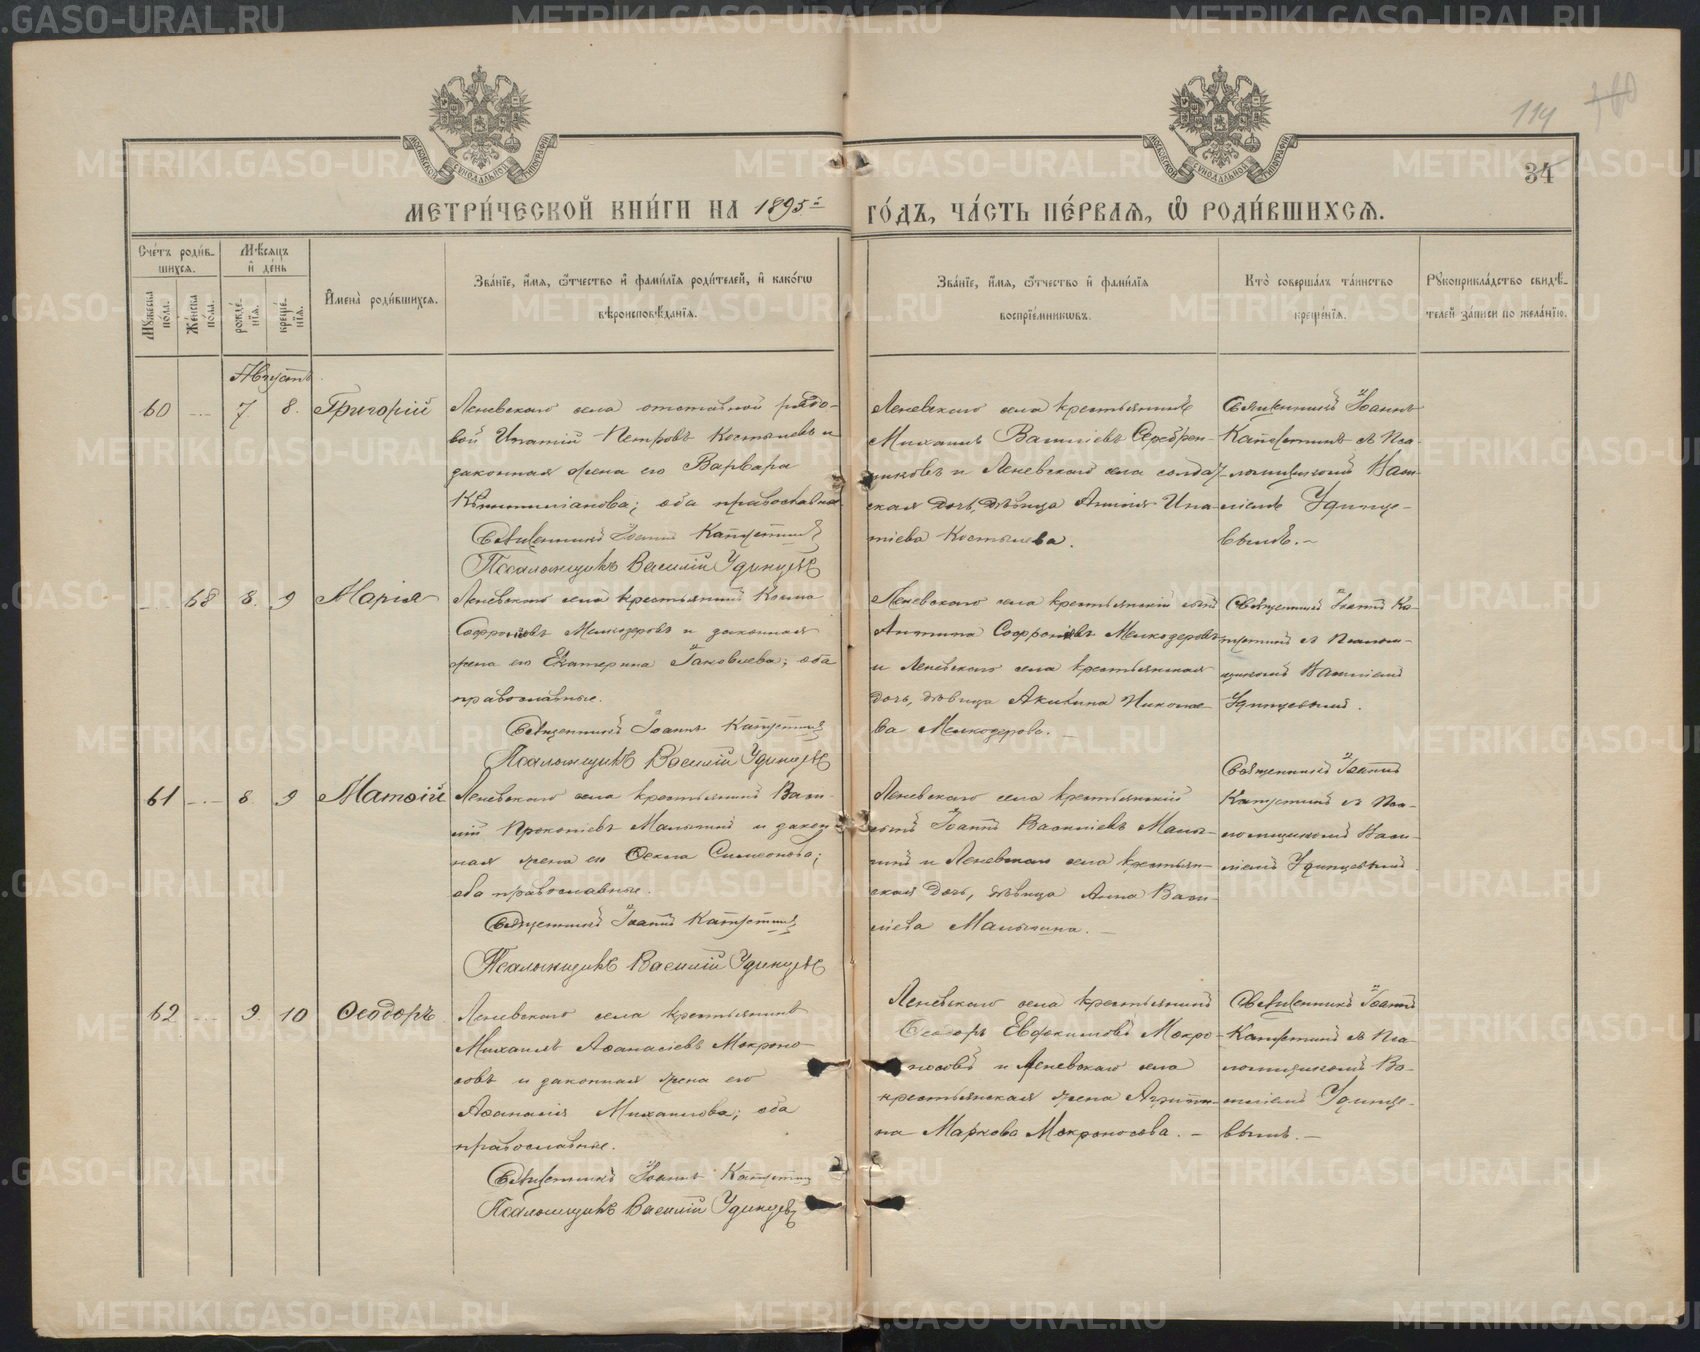 114 160
34
МЕТРИ́ЧЕСКОЙ КНИ́ГИ НА 1895-й ГО́ДЪ, ЧА́СТЬ ПЕ́РВАѦ, Ѽ РОДИ́ВШИХСѦ.
Сче́тъ роди́в-
шихсѧ.
Мѣсѧцъ
и҆ де́нь
Мꙋ́жеска по́ла.
Же́нска по́ла.
рожде́нїѧ.
креще́нїѧ.
И҆мена̀ роди́вшихсѧ.
Зва́нїе, и҆́мѧ, ѻ҆́тчество и҆ фами́лїѧ роди́телей, и҆ како́гѡ
вѣроисповѣ́данїѧ.
Зва́нїе, и҆́мѧ, ѻ҆́тчество и҆ фами́лїѧ
воспрїе́мникѡвъ.
Кто̀ соверша́лъ та́инство
креще́нїѧ.
Рꙋкоприкла́дство свидѣ́-
телей за́писи по жела́нїю.
Августъ.
60 7 8. Григорій
Леневскаго села отставной рядо-
вой Ипатій Петровъ Костылевъ и
законная жена его Варвара
оба православные
Священникъ Іоаннъ Капустинъ
Псаломщикъ Василій Удинцевъ
Леневскаго села крестьянинъ
Михаилъ Василіевъ Серебрен-
никовъ и Леневскаго села солдат-
ская дочь, дѣвица Ипа-
тіева Костылева.
Священникъ Іоаннъ
Капустинъ съ Пса-
ломщикомъ Васи-
ліемъ Удинце-
вымъ.
68 8. 9 Марія
Леневскаго села крестьянинъ Козма
Софроніевъ Мелкозеровъ и законная
жена его Екатерина Іаковлева; оба
православные.
Священникъ Іоаннъ Капустинъ
Псаломщикъ Василій Удинцевъ
Леневскаго села крестьянскій сынъ
Антипа Софроніевъ Мелкозеровъ
и Леневскаго села крестьянская
дочь, дѣвица Акилина Николае-
ва Мелкозерова.
Священникъ Іоаннъ Ка-
пустинъ съ Псалом-
щикомъ Василіемъ
Удинцевымъ.
61 8. 9 Матѳій
Леневскаго села крестьянинъ Васи-
лій Прокопіевъ Малыгинъ и закон-
ная жена его Ѳекла Симеонова;
оба православные.
Священникъ Іоаннъ Капустинъ
Псаломщикъ Василій Удинцевъ
Леневскаго села крестьянскій
сынъ Іоаннъ Василіевъ Малы-
гинъ и Леневскаго села крестьян-
ская дочь, дѣвица Анна Васи-
ліева Малыгина.
Священникъ Іоаннъ
Капустинъ съ Пса-
ломщикомъ Васи-
ліемъ Удинцевымъ
62 9. 10 Ѳеодоръ
Леневскаго села крестьянинъ
Михаилъ Аѳанасіевъ Мокроно-
совъ и законная жена его
Аѳанасія Михаилова; оба
православные.
Священникъ Іоаннъ Капустинъ
Псаломщикъ Василій Удинцевъ
Леневскаго села крестьянинъ
Ѳеодоръ Евфимовъ Мокро-
носовъ и Леневскаго села
крестьянская жена Агриппи-
на Маркова Мокроносова.
Священникъ Іоаннъ
Капустинъ съ Пса-
ломщикомъ Ва-
силіемъ Удинце-
вымъ.
METRIKI.GASO-URAL.RU